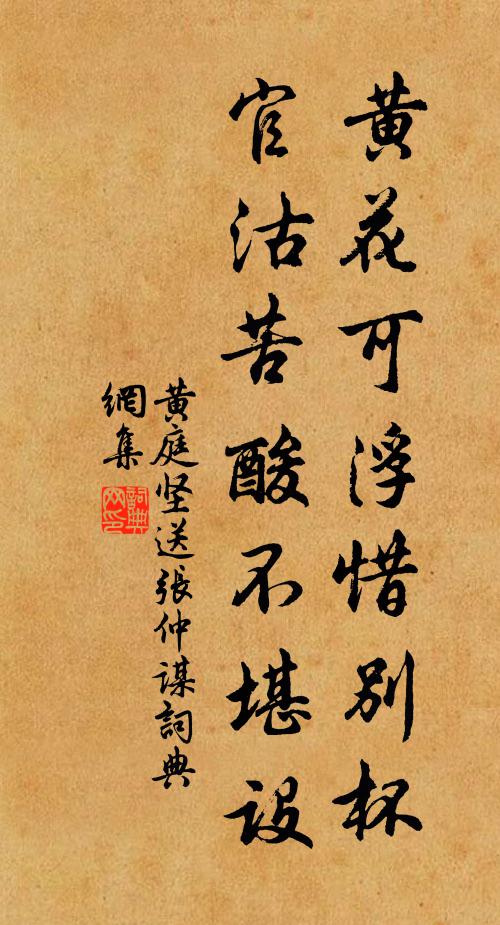 黄花可浮惜别杯
官沽苦酸不堪设
黄庭坚送張仲谋詞典
網集
詞典
网印